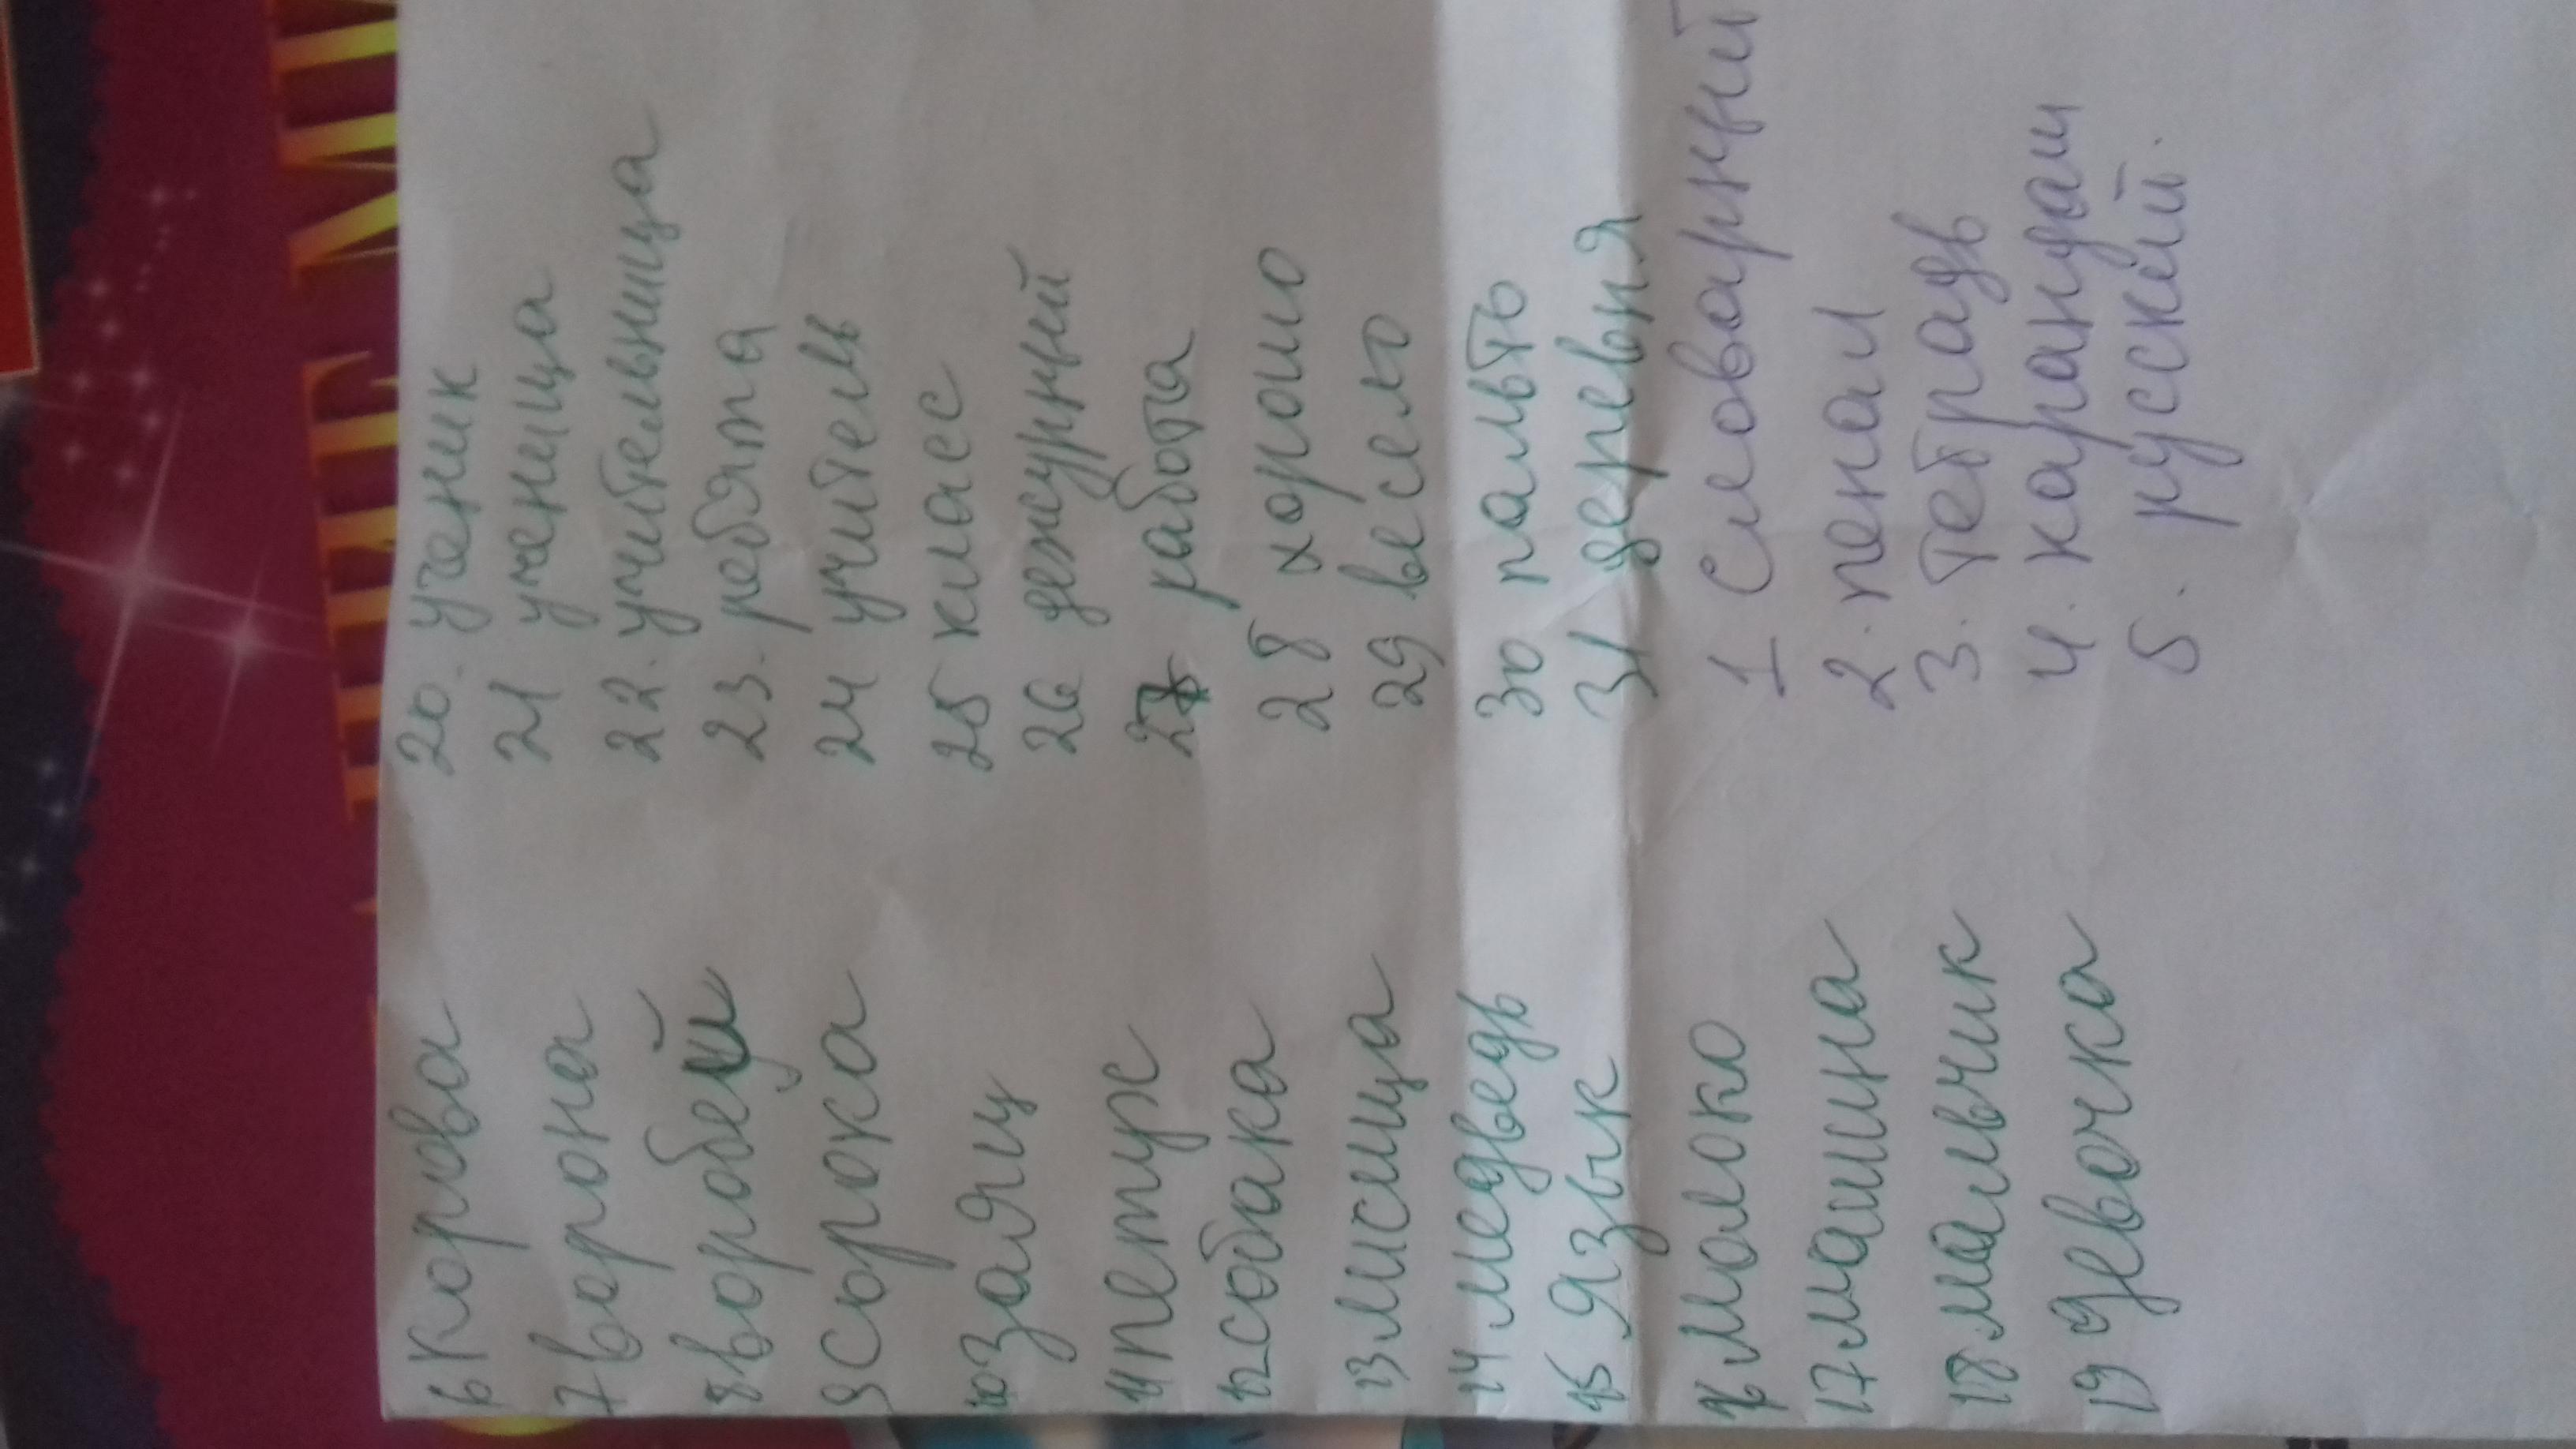 6 Корова
7 ворона
8 воробей
9 сорока
10 заяц
11 петух
12 собака
13 лисица
14 медведь
15 язык
16 молоко
17 машина
18 мальчик
19 девочка
20. ученик
21 ученица
22. учительница
23. ребята
24 учитель
25 класс
26 дежурный
27 работа
28 хорошо
29 весело
30 пальто
31 деревня
1 Словарный
2. пенал
3. тетрадь
4. карандаш
5. русский.